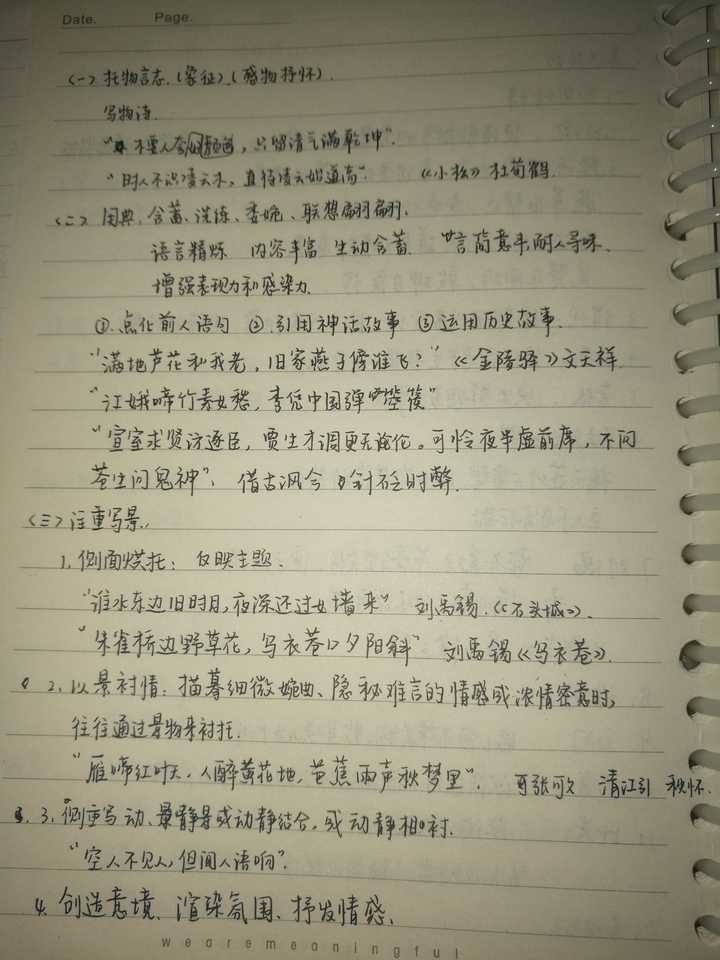 Date.    Page.
(一) 托物言志.(象征).(感物抒怀).
写物诗.
"不要人夸颜色, 只留清气满乾坤".
"时人不识凌云木, 直待凌云始道高".    《小松》杜荀鹤.
(二) 用典, 含蓄、洗练、委婉、联想翩翩.
语言精炼 内容丰富 生动含蓄. 言简意丰,耐人寻味.
增强表现力和感染力.
①.点化前人语句 ②.引用神话故事 ③运用历史故事.
"满地芦花和我老, 旧家燕子傍谁飞?" 《金陵驿》文天祥.
"江娥啼竹素女愁, 李凭中国弹箜篌"
"宣室求贤访逐臣, 贾生才调更无论伦。可怜夜半虚前席, 不问
苍生问鬼神", 借古讽今 针砭时弊.
(三) 注重写景.
1. 侧面烘托: 反映主题.
"淮水东边旧时月, 夜深还过女墙来" 刘禹锡.《石头城》.
"朱雀桥边野草花, 乌衣巷口夕阳斜" 刘禹锡《乌衣巷》.
2. 以景衬情: 描摹细微婉曲、隐秘难言的情感或浓情密意时,
往往通过景物来衬托.
"雁啼红叶天, 人醉黄花地, 芭蕉雨声秋梦里". 张可久 清江引 秋怀.
3. 侧重写动、景静景或动静结合, 或动静相衬.
"空人不见人, 但闻人语响".
4. 创造意境、渲染氛围、抒发情感、
wearemeaningful